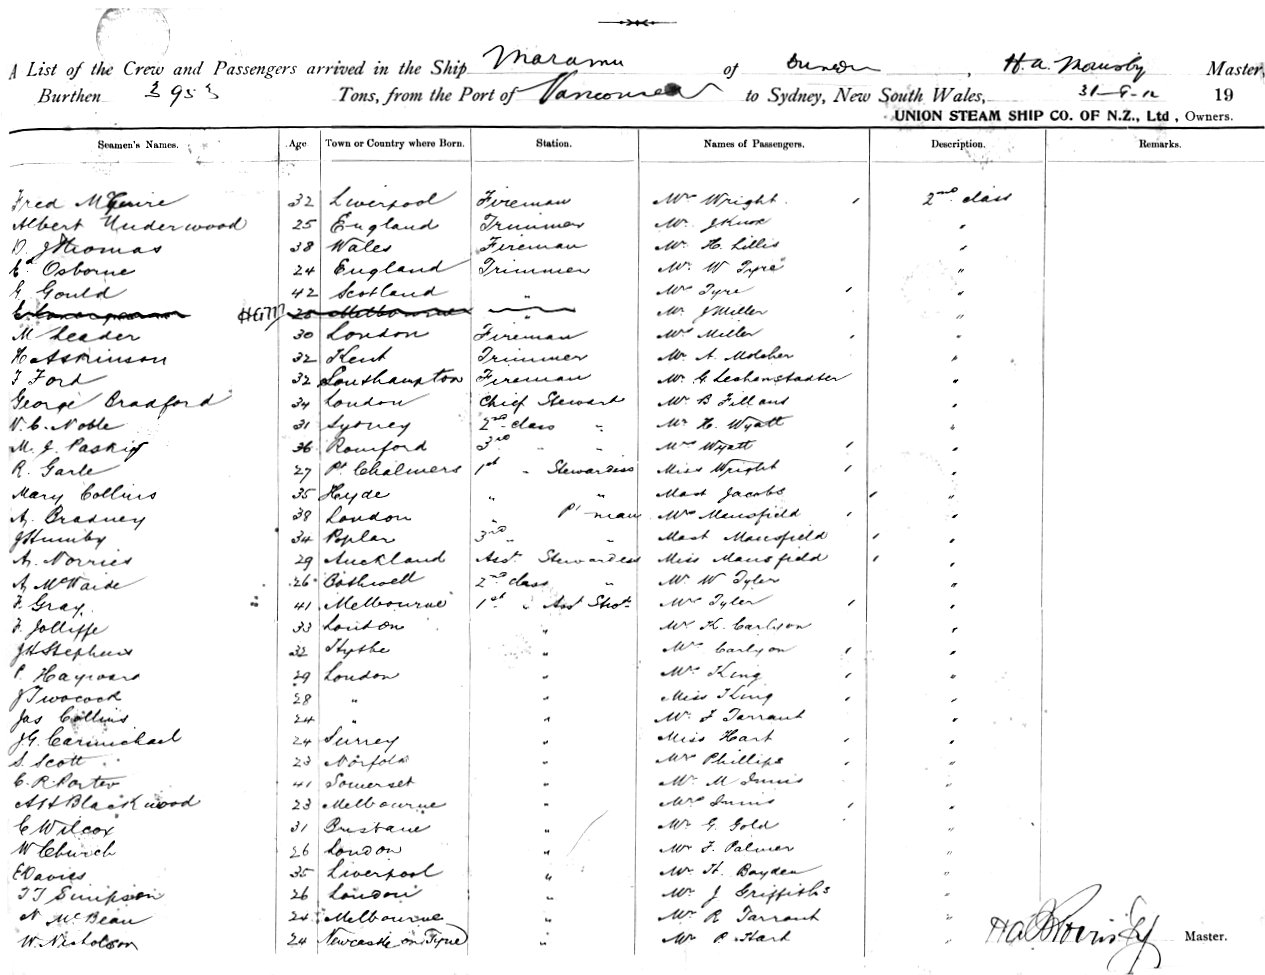 A List of the Crew and Passengers arrived in the Ship Marama of Dunedin, H.A. Master,
Burthen Tons, from the Port of Vancouver to Sydney, New South Wales, 19
UNION STEAM SHIP CO. OF N.Z., Ltd, Owners.
Seamen's Names. Age Town or Country where Born. Station. Names of Passengers. Description. Remarks.
Fred McGuire 32 Liverpool Fireman Mrs Wright ' 2nd class
Albert Underwood 25 England Trimmer Mr J Knox "
D. J Thomas 38 Wales Fireman Mr H. Lillis "
Ed Osborne 24 England Trimmer Mr W Tyre "
G Gould 42 Scotland " Mrs Tyre ' "
HGM 28 Melbourne Mr J Miller "
M Leader 30 London Fireman Mrs Miller ' "
H Askinson 32 Kent Trimmer Mr A. "
T Ford 32 Southampton Fireman Mr G. "
George Bradford 34 London Chief Stewart Mr B Fillans "
V. C. Noble 31 Sydney 2nd class " Mr H. Wyatt "
M. J. 36 Romford 3rd " " Mrs Wyatt ' "
R. Garle 27 Pt Chalmers 1st " Stewardess Miss Wright ' "
Mary Collins 35 Hyde " " Mast Jacobs ' "
A. Bradney 38 London " P'man Mrs Mansfield ' "
J Humby 34 Poplar 3rd " " Mast Mansfield ' "
A. Norries 29 Auckland Asst. Stewardess Miss Mansfield ' "
A. 26 Bothwell 2nd class " Mr W Tyler "
F. Gray 41 Melbourne 1st " Asst Mrs Tyler ' "
F. Jolliffe 33 London " Mr K. Carlyon "
J H Stephens 32 Hythe " Mrs Carlyon ' "
P. Hayward 29 London " Mrs King ' "
J Twocock 28 " " Miss King ' "
Jas Collins 24 " " Mr F Tarrant "
J G. Carmichael 24 Surrey " Miss Hart ' "
S. Scott 23 Norfolk " Mrs Phillips ' "
C. R. Porter 41 Somerset " Mr M Innis "
A H Blackwood 23 Melbourne " Mrs Innis ' "
C Wilcox 31 Brisbane " Mr G. Gold "
W Church 26 London " Mr F. Palmer "
E Davies 35 Liverpool " Mr H. Boyden "
T T Simpson 26 London " Mr J Griffiths "
N. McBean 24 Melbourne " Mr R Tarrant "
W. Nicholson 24 Newcastle on Tyne " Mr P. Hart " Master.